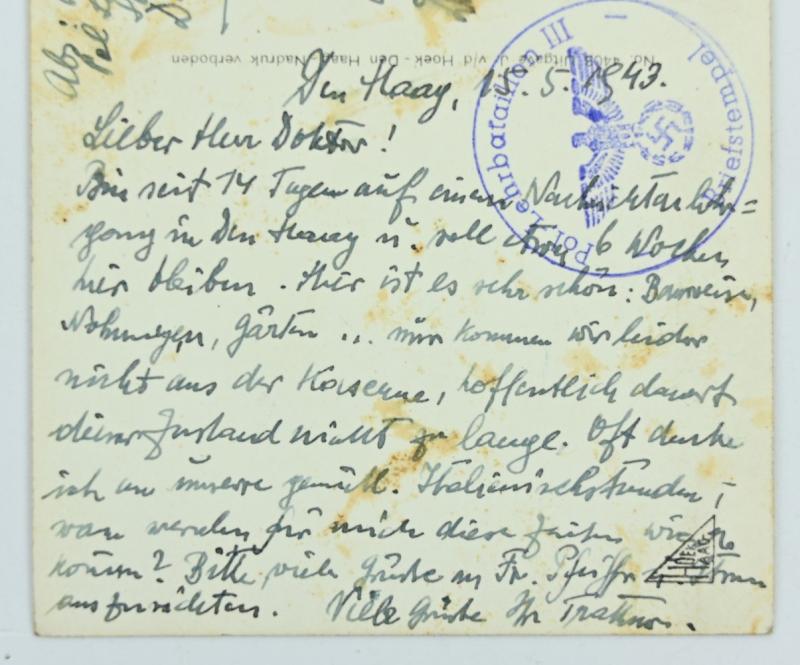 Abs
Pol.
No. 440B Uitgave J. v/d Hoek - Den Haag - Nadruk verboden
Pol. Lehrbataillon III
Briefstempel
Den Haag, 15. 5. 1943.
Lieber Herr Doktor!
Bin seit 14 Tagen auf einem Nachrichtenlehr=
gang in Den Haag u. soll 6 Wochen
hier bleiben. Hier ist es sehr schön: Bauweise,
Wohnungen, Gärten ... nur kommen wir leider
nicht aus der Kaserne, hoffentlich dauert
dieser Zustand nicht zu lange. Oft denke
ich an unsere gemütl. Italienischstunden,
wann werden für mich diese Zeiten wieder
kommen? Bitte viele Grüße an Fr. Pfeiffer
auszurichten. Viele Grüße Ihr
HOEK
HAAG